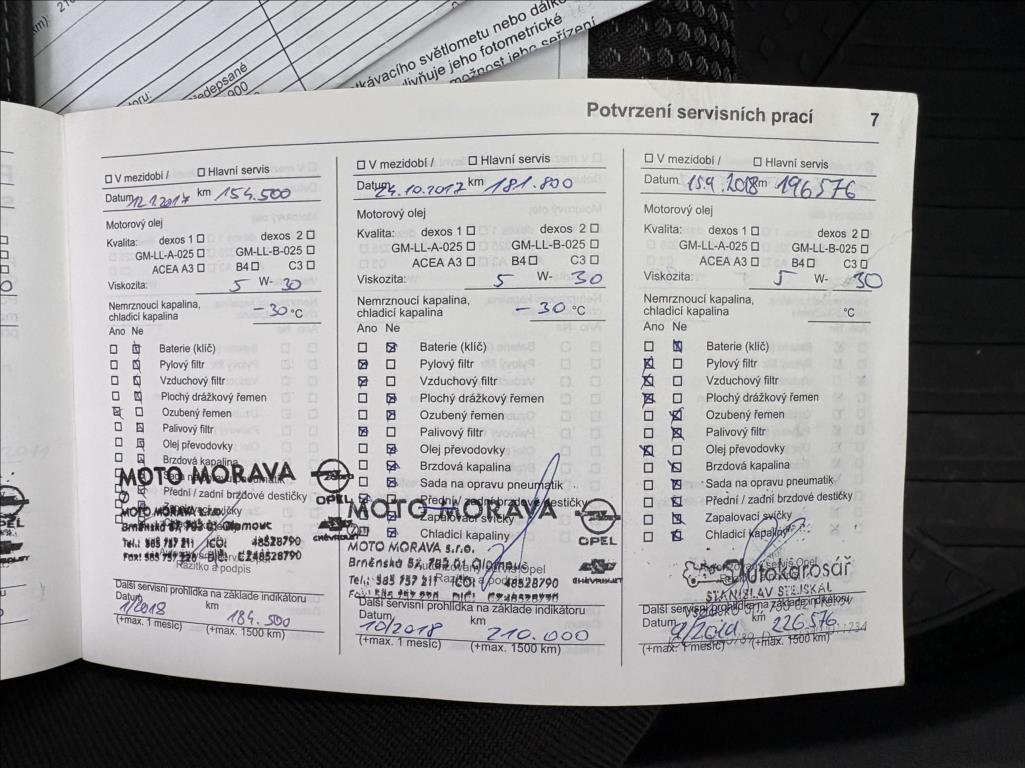 kávacího světlometu nebo dálko
livňuje jeho fotometrické
možnost jeho seřízení
depsané
900
Potvrzení servisních prací 7
V mezidobí / Hlavní servis
Datum 12.1.2017 km 154.500
Motorový olej
Kvalita: dexos 1 dexos 2
GM-LL-A-025 GM-LL-B-025
ACEA A3 B4 C3
Viskozita: 5 W- 30
Nemrznoucí kapalina,
chladicí kapalina -30 °C
Ano Ne
Baterie (klíč)
Pylový filtr
Vzduchový filtr
Plochý drážkový řemen
Ozubený řemen
Palivový filtr
Olej převodovky
Brzdová kapalina
Sada na opravu pneumatik
Přední / zadní brzdové destičky
MOTO MORAVA
OPEL
MOTO MORAVA s.r.o.
Brněnská 57, 783 01 Olomouc
Tel.: 585 757 211 IČO: 48528790
CHEVROLET
Razítko a podpis
Další servisní prohlídka na základě indikátoru
Datum 1/2018 km 184.500
(+max. 1 měsíc) (+max. 1500 km)
V mezidobí / Hlavní servis
Datum 24.10.2017 km 181.800
Motorový olej
Kvalita: dexos 1 dexos 2
GM-LL-A-025 GM-LL-B-025
ACEA A3 B4 C3
Viskozita: 5 W- 30
Nemrznoucí kapalina,
chladicí kapalina -30 °C
Ano Ne
Baterie (klíč)
Pylový filtr
Vzduchový filtr
Plochý drážkový řemen
Ozubený řemen
Palivový filtr
Olej převodovky
Brzdová kapalina
Sada na opravu pneumatik
Přední / zadní brzdové destičky
Zapalovací svíčky
Chladicí kapaliny
MOTO MORAVA
OPEL
MOTO MORAVA s.r.o.
Brněnská 57, 783 01 Olomouc
Tel.: 585 757 211 IČO: 48528790
CHEVROLET
Razítko a podpis
Další servisní prohlídka na základě indikátoru
Datum 10/2018 km 210.000
(+max. 1 měsíc) (+max. 1500 km)
V mezidobí / Hlavní servis
Datum 15.9.2018 km 196576
Motorový olej
Kvalita: dexos 1 dexos 2
GM-LL-A-025 GM-LL-B-025
ACEA A3 B4 C3
Viskozita: 5 W- 30
Nemrznoucí kapalina,
chladicí kapalina °C
Ano Ne
Baterie (klíč)
Pylový filtr
Vzduchový filtr
Plochý drážkový řemen
Ozubený řemen
Palivový filtr
Olej převodovky
Brzdová kapalina
Sada na opravu pneumatik
Přední / zadní brzdové destičky
Zapalovací svíčky
Chladicí kapaliny
Autokarosář
STANISLAV STEJSKAL
Další servisní prohlídka na základě indikátoru
Datum km 226576
(+max. 1 měsíc) (+max. 1500 km)